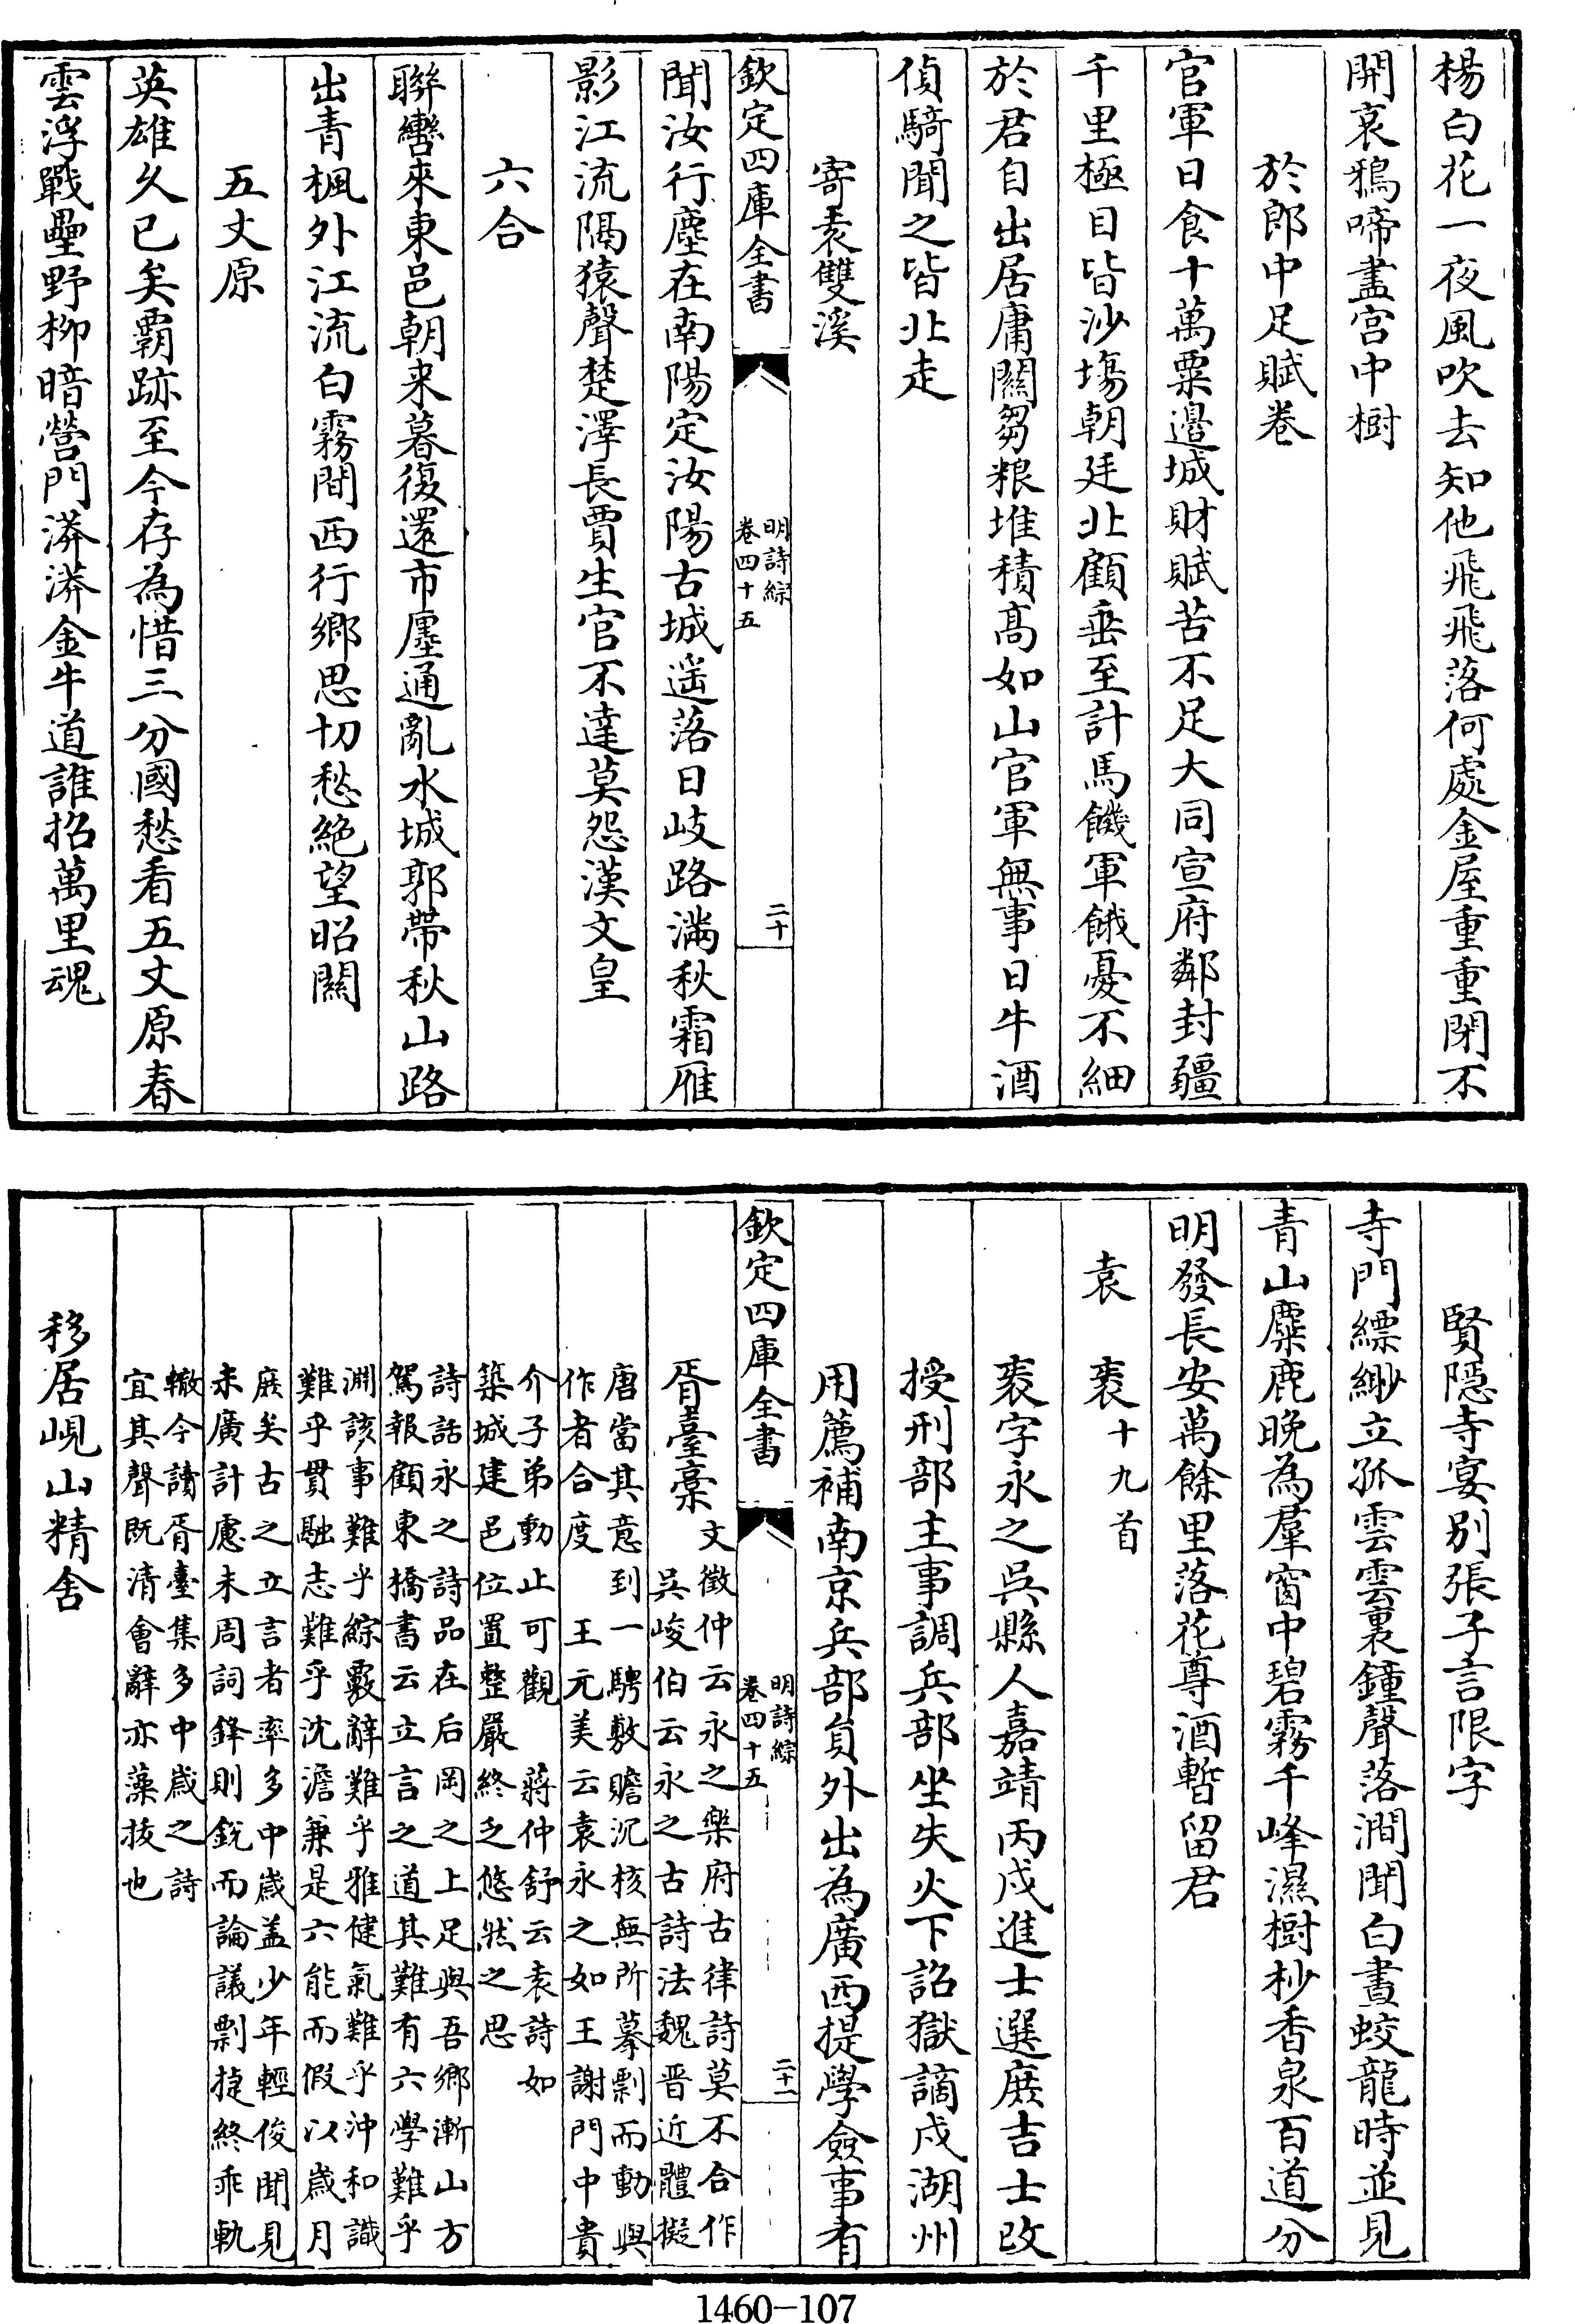 楊白花一夜風吹去知他飛飛落何處金屋重重閉不
開哀鴉啼盡宮中樹
於郎中足賦卷
官軍日食十萬粟邊城財賦苦不足大同宣府鄰封疆
千里極目皆沙塲朝廷北顧垂至計馬饑軍餓憂不細
於君自出居庸關芻粮堆積髙如山官軍無事日牛酒
偵騎聞之皆北走
寄袁雙溪
欽定四庫全書
明詩綜
卷四十五
二十
聞汝行塵在南陽定汝陽古城遥落日岐路滿秋霜雁
影江流隔猿聲楚澤長賈生官不達莫怨漢文皇
六合
聯轡來東邑朝来暮復還市廛通亂水城郭帶秋山路
出青楓外江流白霧間西行鄉思切愁絶望昭關
五丈原
英雄久已矣霸跡至今存為惜三分國愁看五丈原春
雲浮戰壘野柳暗營門漭漭金牛道誰招萬里魂
賢隱寺宴别張子言限字
寺門縹緲立孤雲雲裏鐘聲落澗聞白晝蛟龍時並見
青山麋鹿晚為羣窗中碧霧千峰濕樹杪香泉百道分
明發長安萬餘里落花尊酒暫留君
袁袠十九首
袠字永之吳縣人嘉靖丙戌進士選庶吉士改
授刑部主事調兵部坐失火下詔獄謫戍湖州
用薦補南京兵部員外出為廣西提學僉事有
欽定四庫全書
明詩綜
卷四十五
二十一
胥臺槀
文徵仲云永之樂府古律詩莫不合作
吳峻伯云永之古詩法魏晉近體擬
唐當其意到一騁敷贍沉核無所摹剽而動與
作者合度　王元美云袁永之如王謝門中貴
介子弟動止可觀　蔣仲舒云袁詩如
築城建邑位置整嚴終乏悠然之思
詩話永之詩品在后岡之上足與吾鄉漸山方
駕報顧東橋書云立言之道其難有六學難乎
淵該事難乎綜覈辭難乎雅健氣難乎沖和識
難乎貫融志難乎沈澹兼是六能而假以歲月
庶矣古之立言者率多中歲盖少年輕俊聞見
未廣計慮未周詞鋒則鋭而論議剽㨗終乖軌
轍今讀胥臺集多中歲之詩
宜其聲既清會辭亦藻拔也
移居峴山精舍
1460-107